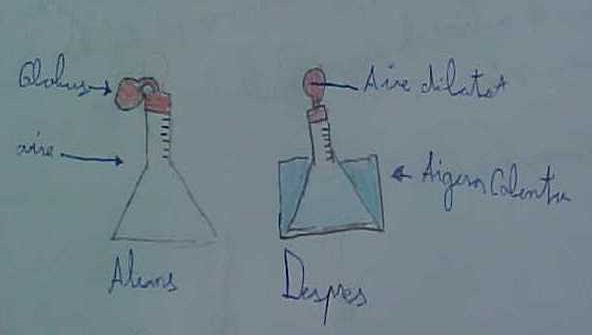 Globus
aire
Aire dilatat
Aigua Calenta
Abans
Despres